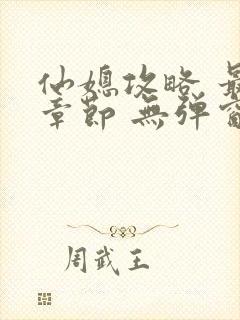 仙媳攻略 最
章節 無彈窗
周武王